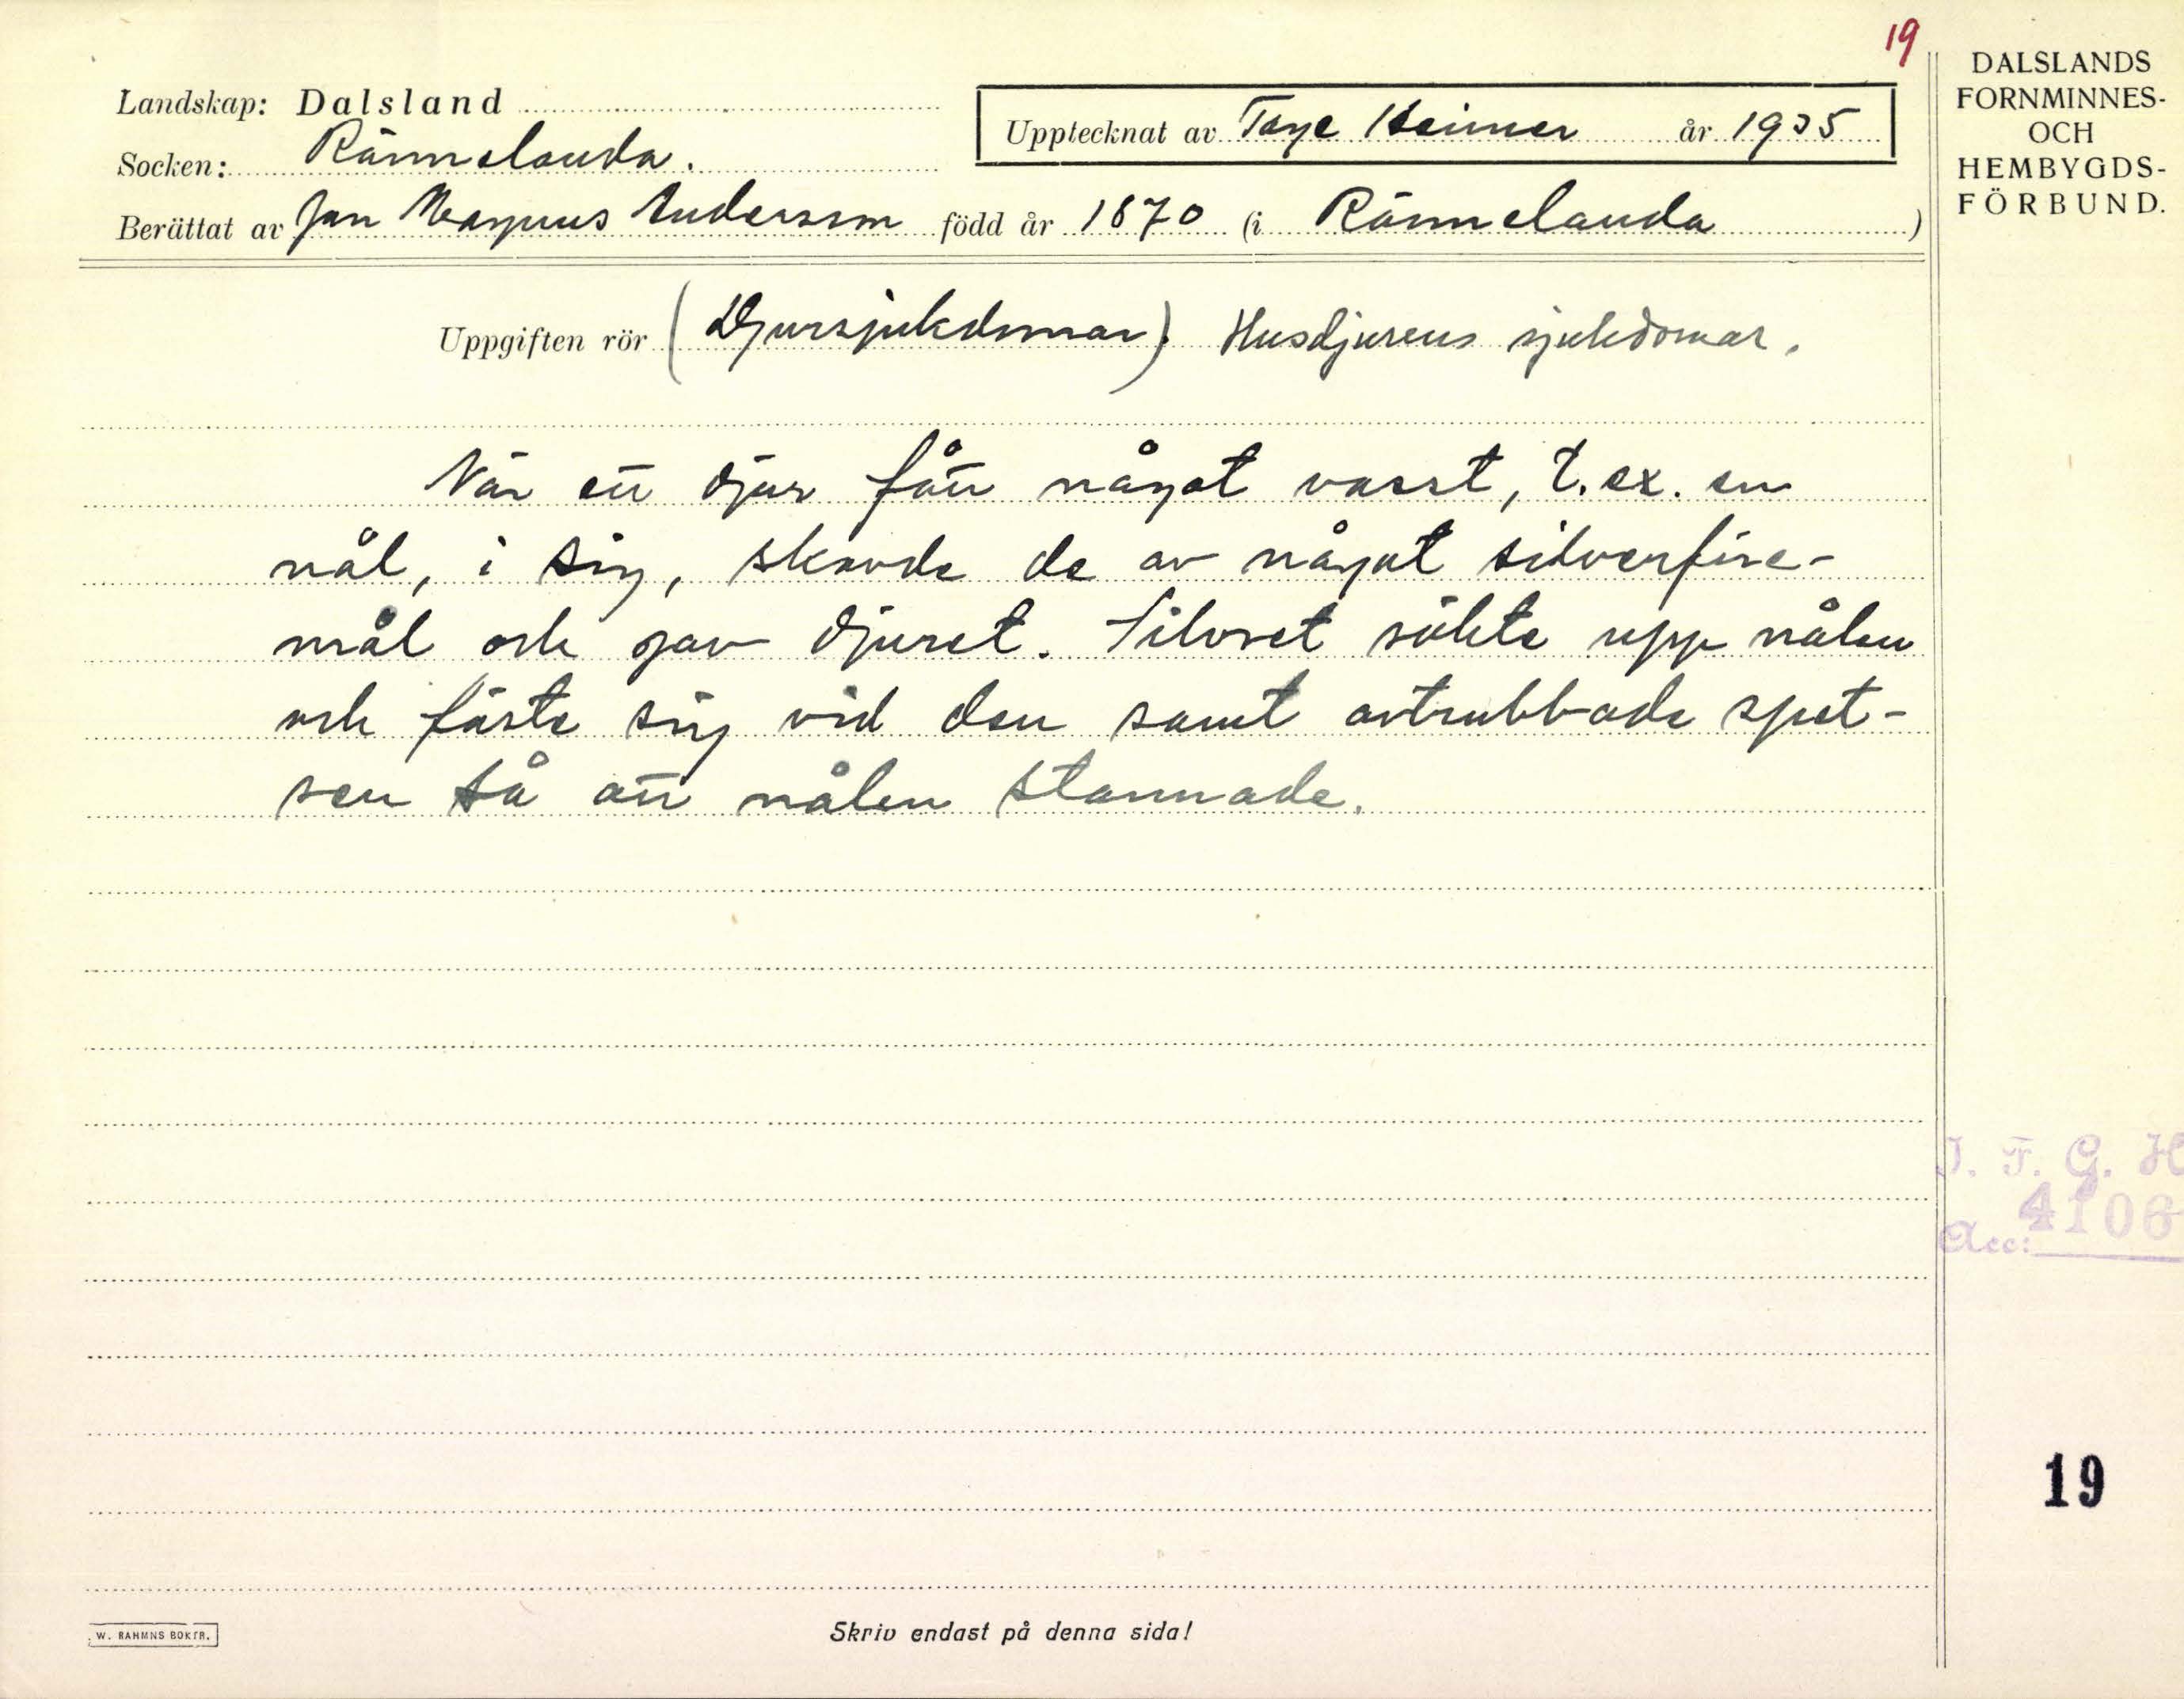 19
DALSLANDS
FORNMINNES-
OCH
HEMBYGDS-
FÖRBUND.
Landskap: Dalsland
Upptecknat av Tage Heimer år 1935
Socken: Rännelanda.
Berättat av Jan Magnus Andersson född år 1870 (i Rännelanda)
Uppgiften rör (Djursjukdomar) Husdjurens sjukdomar.
När ett djur fått något vasst, t.ex. en
nål, i sig, skavde de av något silverföre-
mål och gav djuret. Silvret sökte upp nålen
och fäste sig vid den samt avtrubbade spet-
sen så att nålen stannade.
I. F. G. H
Acc: 4106
19
W. RAHMNS BOKTR.
Skriv endast på denna sida!